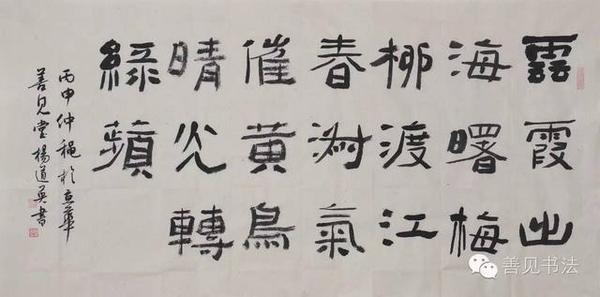 雲霞出
海曙梅
柳渡江
春淑氣
催黃鳥
晴光轉
綠蘋
丙申仲穐於京華
善見堂楊道英書
善见书法